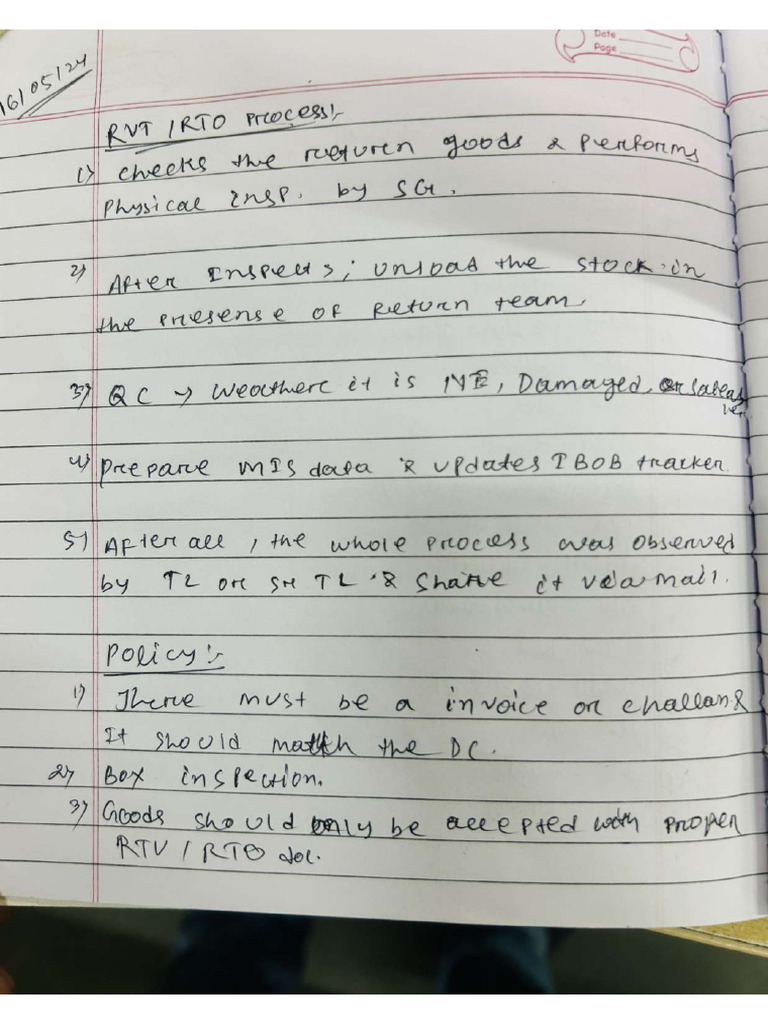 Date
Page
16/05/24
RVT / RTO Process:-
1) Checks the return goods & performs
Physical insp. by SG.
2) After Inspects; unload the stock in
the presense of Return team.
3) QC → Weather it is NE, Damaged, or
4) Prepare MIS data & updates IBOB tracker.
5) After all, the whole process was observed
by TL or SR TL & Share it via mail.
Policy:-
1) There must be a invoice or challan &
It should match the DC.
2) Box inspection.
3) Goods should only be accepted with proper
RTV / RTO doc.